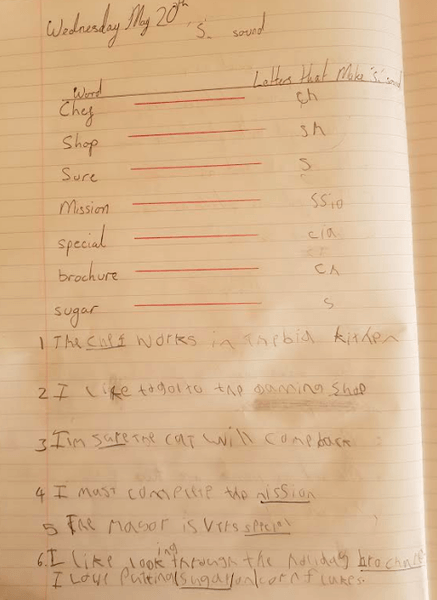 Wednesday May 20th 'S' sound
Word Letters that Make 'S' sound
Chef ch
Shop sh
Sure s
Mission ssio
special cia
brochure ch
sugar s
1 The chef works in the big kitchen
2 I like to go to the shop
3 I'm sure the cat will come back
4 I must complete the mission
5 The is special
6. I like looking through the holiday brochure
I love putting sugar on corn flakes